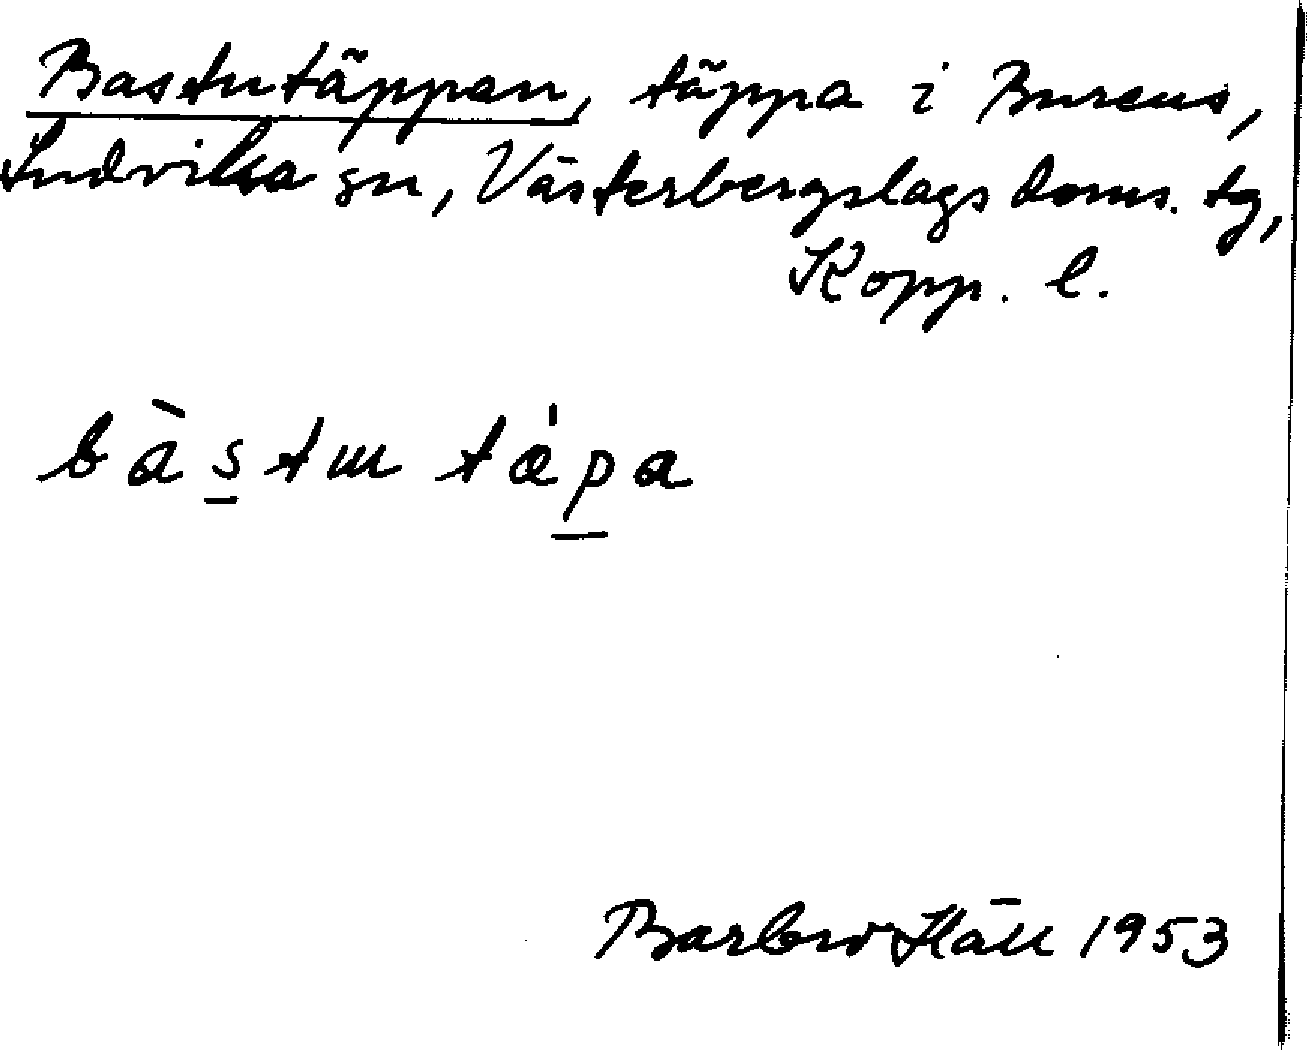 Bastutäppan, täppa i Burens,
Ludvika sn, Västerbergslags doms. tg,
Kopp. l.
bàstɯ tæ̀pa
Barbro Häll 1953